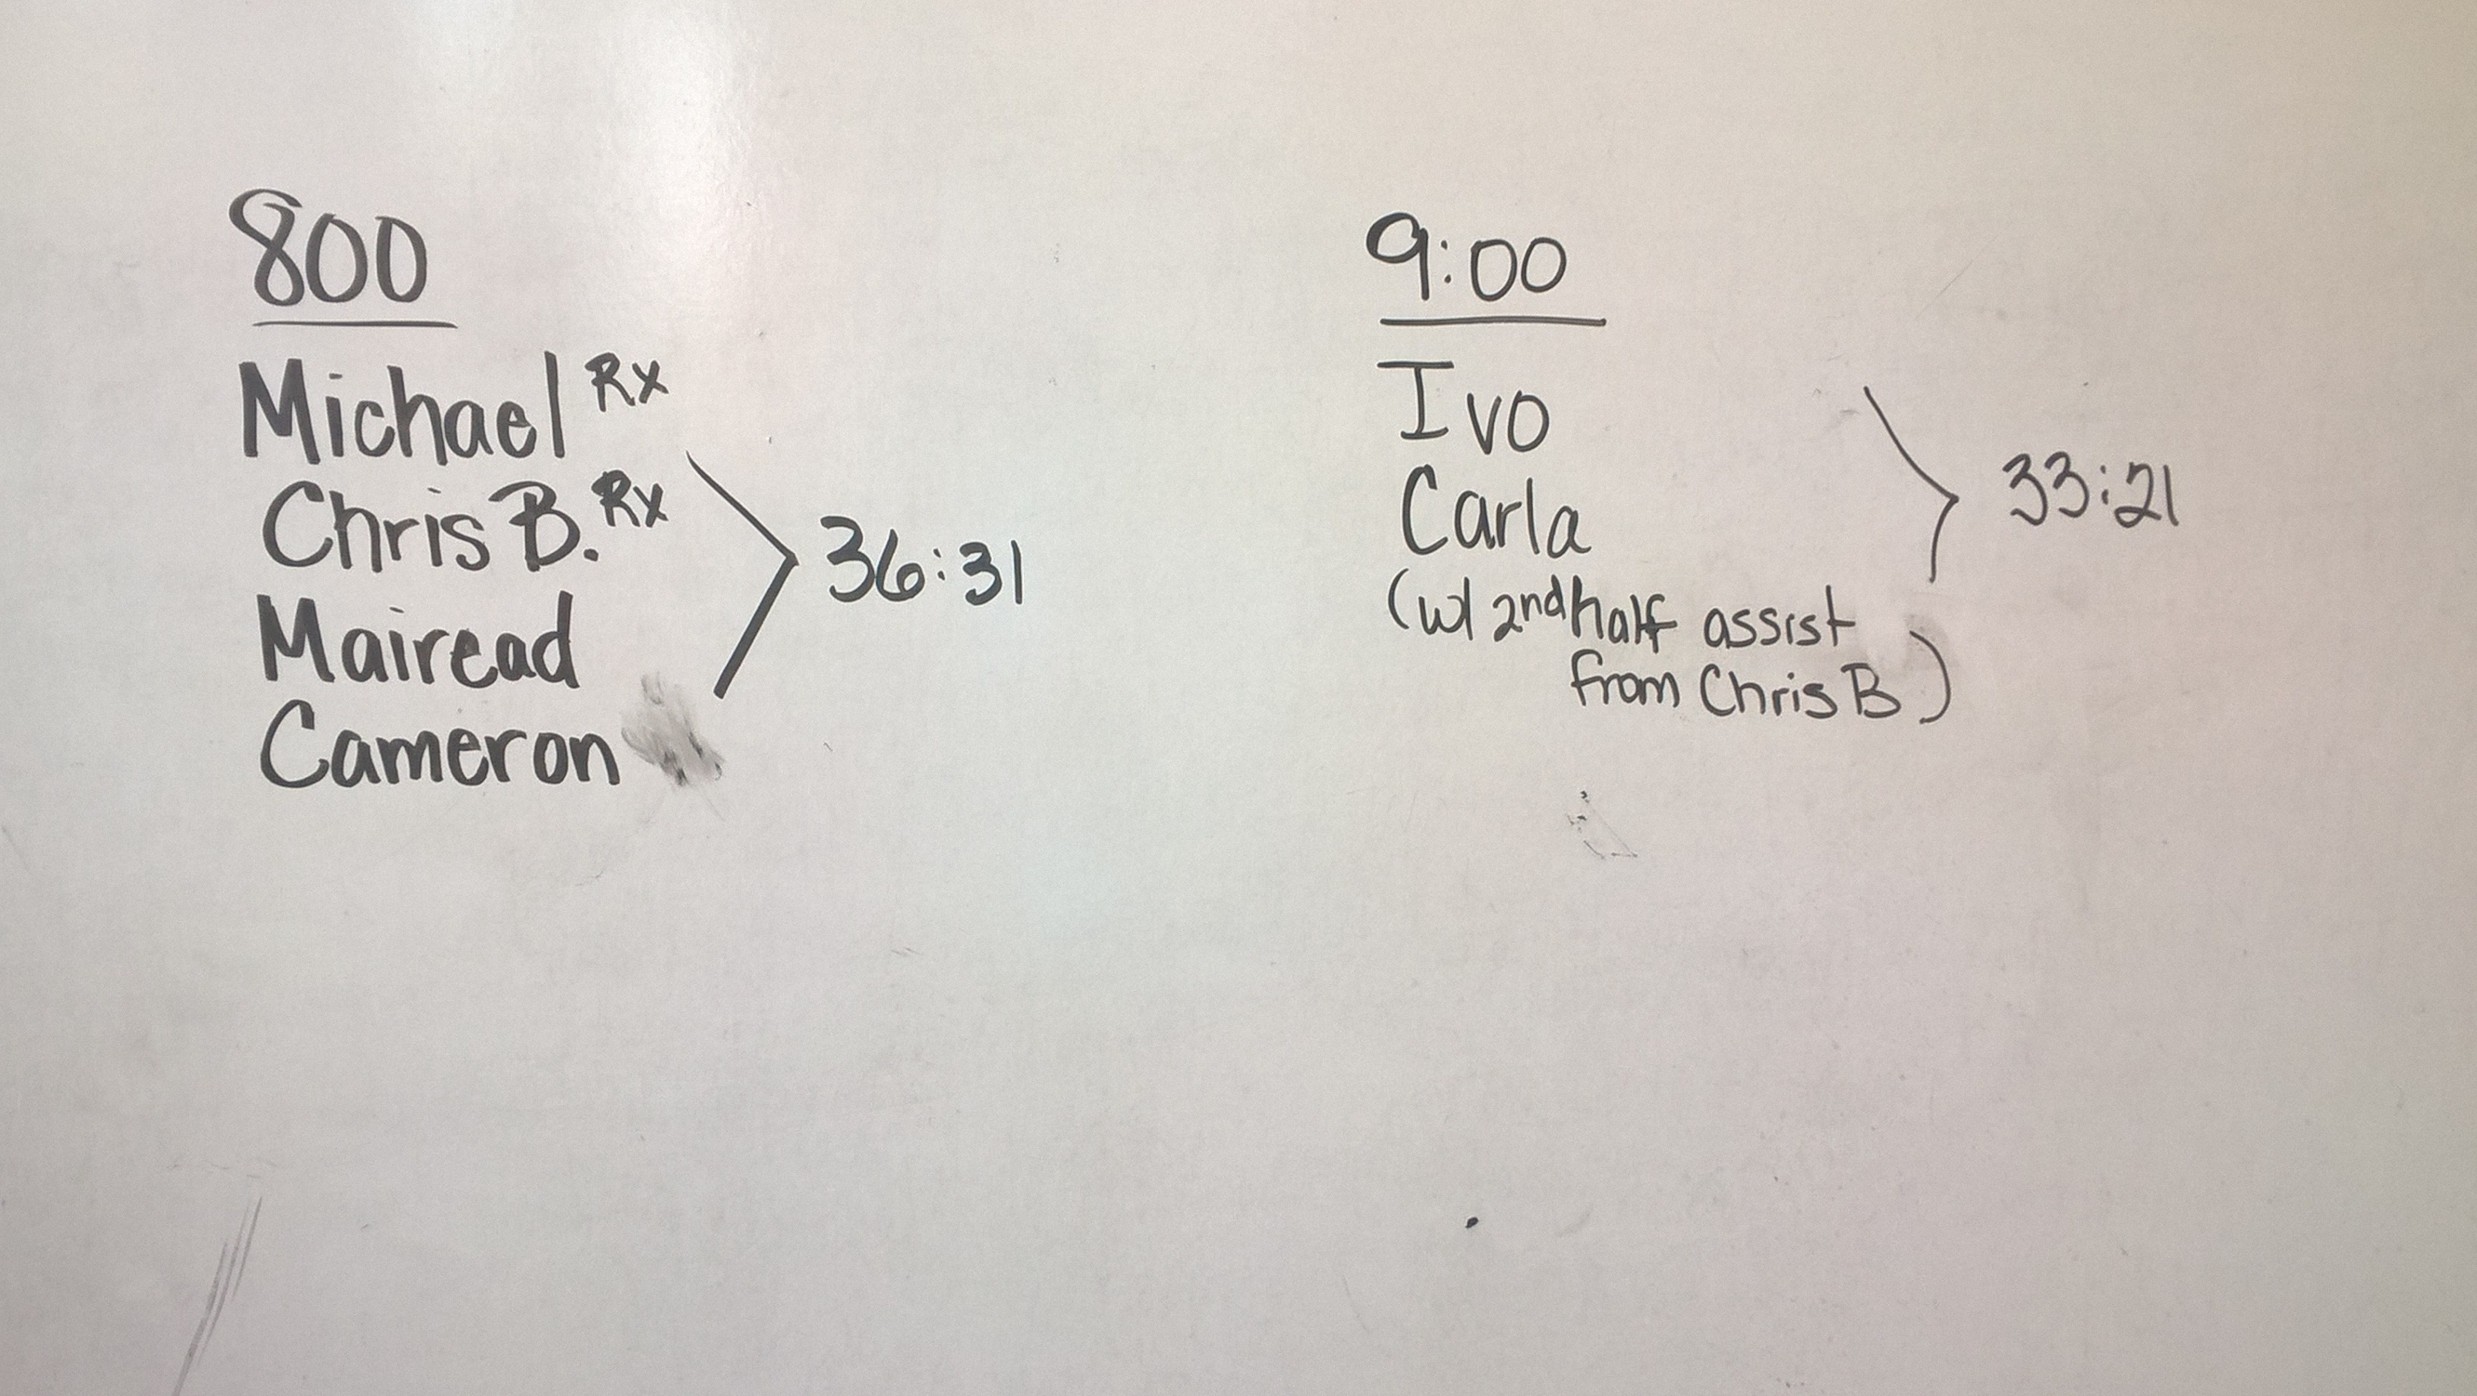 800
Michael Rx
Chris B. Rx
Mairead
Cameron
36:31
9:00
Ivo
Carla
(w/ 2nd half assist
from Chris B)
33:21